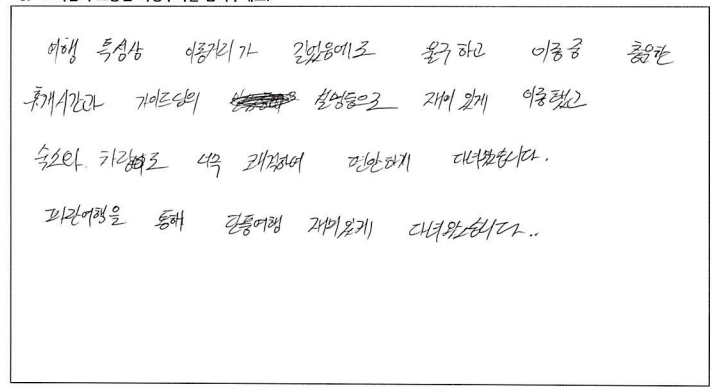 여행 특성상 이동거리가 길었음에로 불구하고 이동중 충분한
휴게시간과 가이드님의 설명등으로 재미있게 이동했고
숙소와 차량 너무 쾌적하여 편안하게 다녀왔습니다.
파란여행을 통해 단풍여행 재미있게 다녀왔습니다..